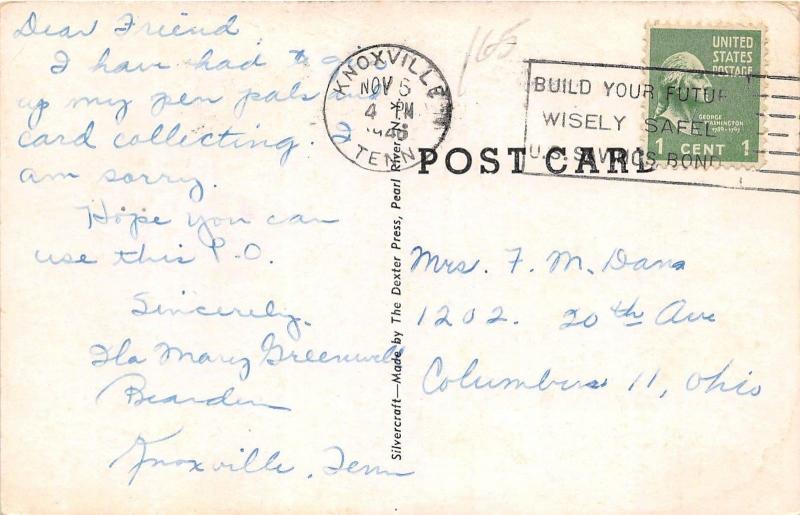 Dear Friend
I have had to
up my pen pals
card collecting. I
am sorry.
Hope you can
use this P.O.
Sincerely,
Ila Mary Greenwell
Bearden
Knoxville, Tenn
165
KNOXVILLE
NOV 6
4 PM
TENN.
BUILD YOUR FUTUR
WISELY SAFEL
U.S. SAVINGS BOND
UNITED
STATES
POSTAGE
GEORGE
WASHINGTON
1789-1797
1 CENT 1
POST CARD
Silvercraft—Made by The Dexter Press, Pearl River, N.Y.
Mrs. F. M. Dana
1202. 20th Ave
Columbus 11, Ohio